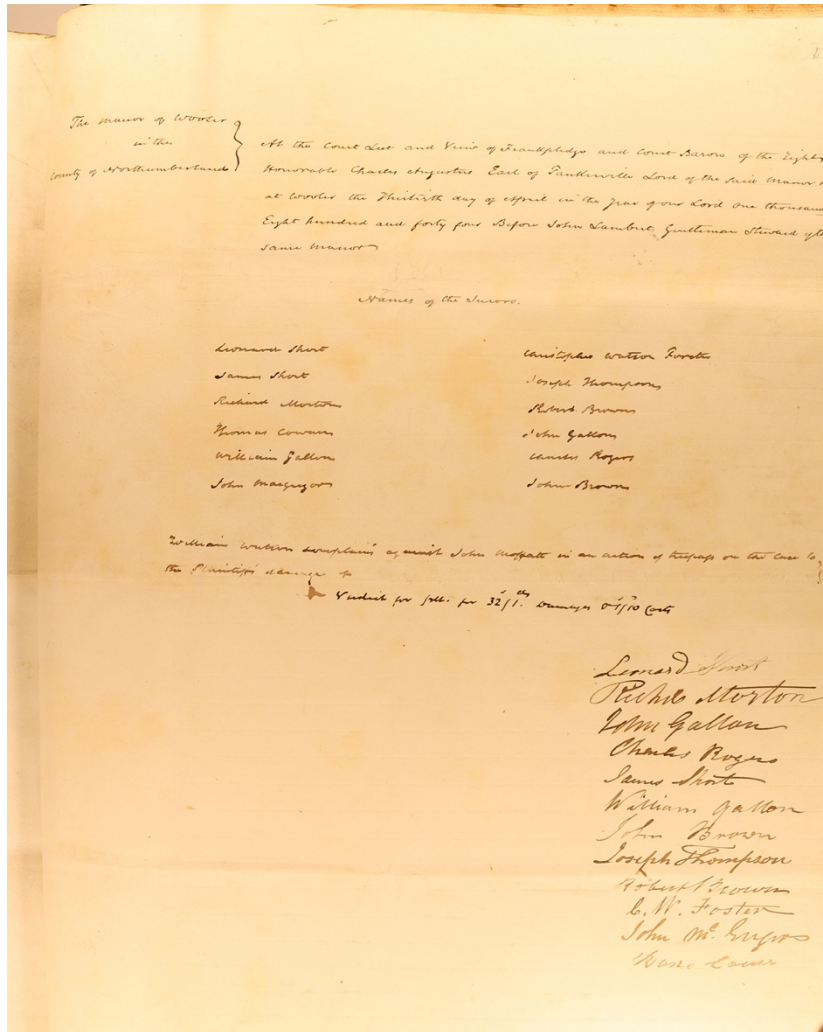 The Manor of Wooler
in the
County of Northumberland
At the Court Leet and View of Frankpledge and Court Baron of the Right
Honorable Charles Augustus Earl of Tankerville Lord of the said Manor
at Wooler the Thirtieth day of April in the Year of our Lord One thousand
Eight hundred and forty four Before John Lambert, Gentleman Steward of the
same Manor
Names of the Jurors.
Leonard Short
James Short
Richard Morton
Thomas Cowan
William Gallon
John Macgregor
Christopher Watson Forster
Joseph Thompson
Robert Brown
John Gallon
Charles Rogers
John Brown
William Watson complains against John Moffatt in an action of trespass on the case to
the Plaintiffs damage of
Verdict for pltt. for 32/1. Damages Costs
Leonard Short
Richd Morton
John Gallon
Charles Rogers
James Short
William Gallon
John Brown
Joseph Thompson
Robert Brown
C. W. Foster
John Mc.